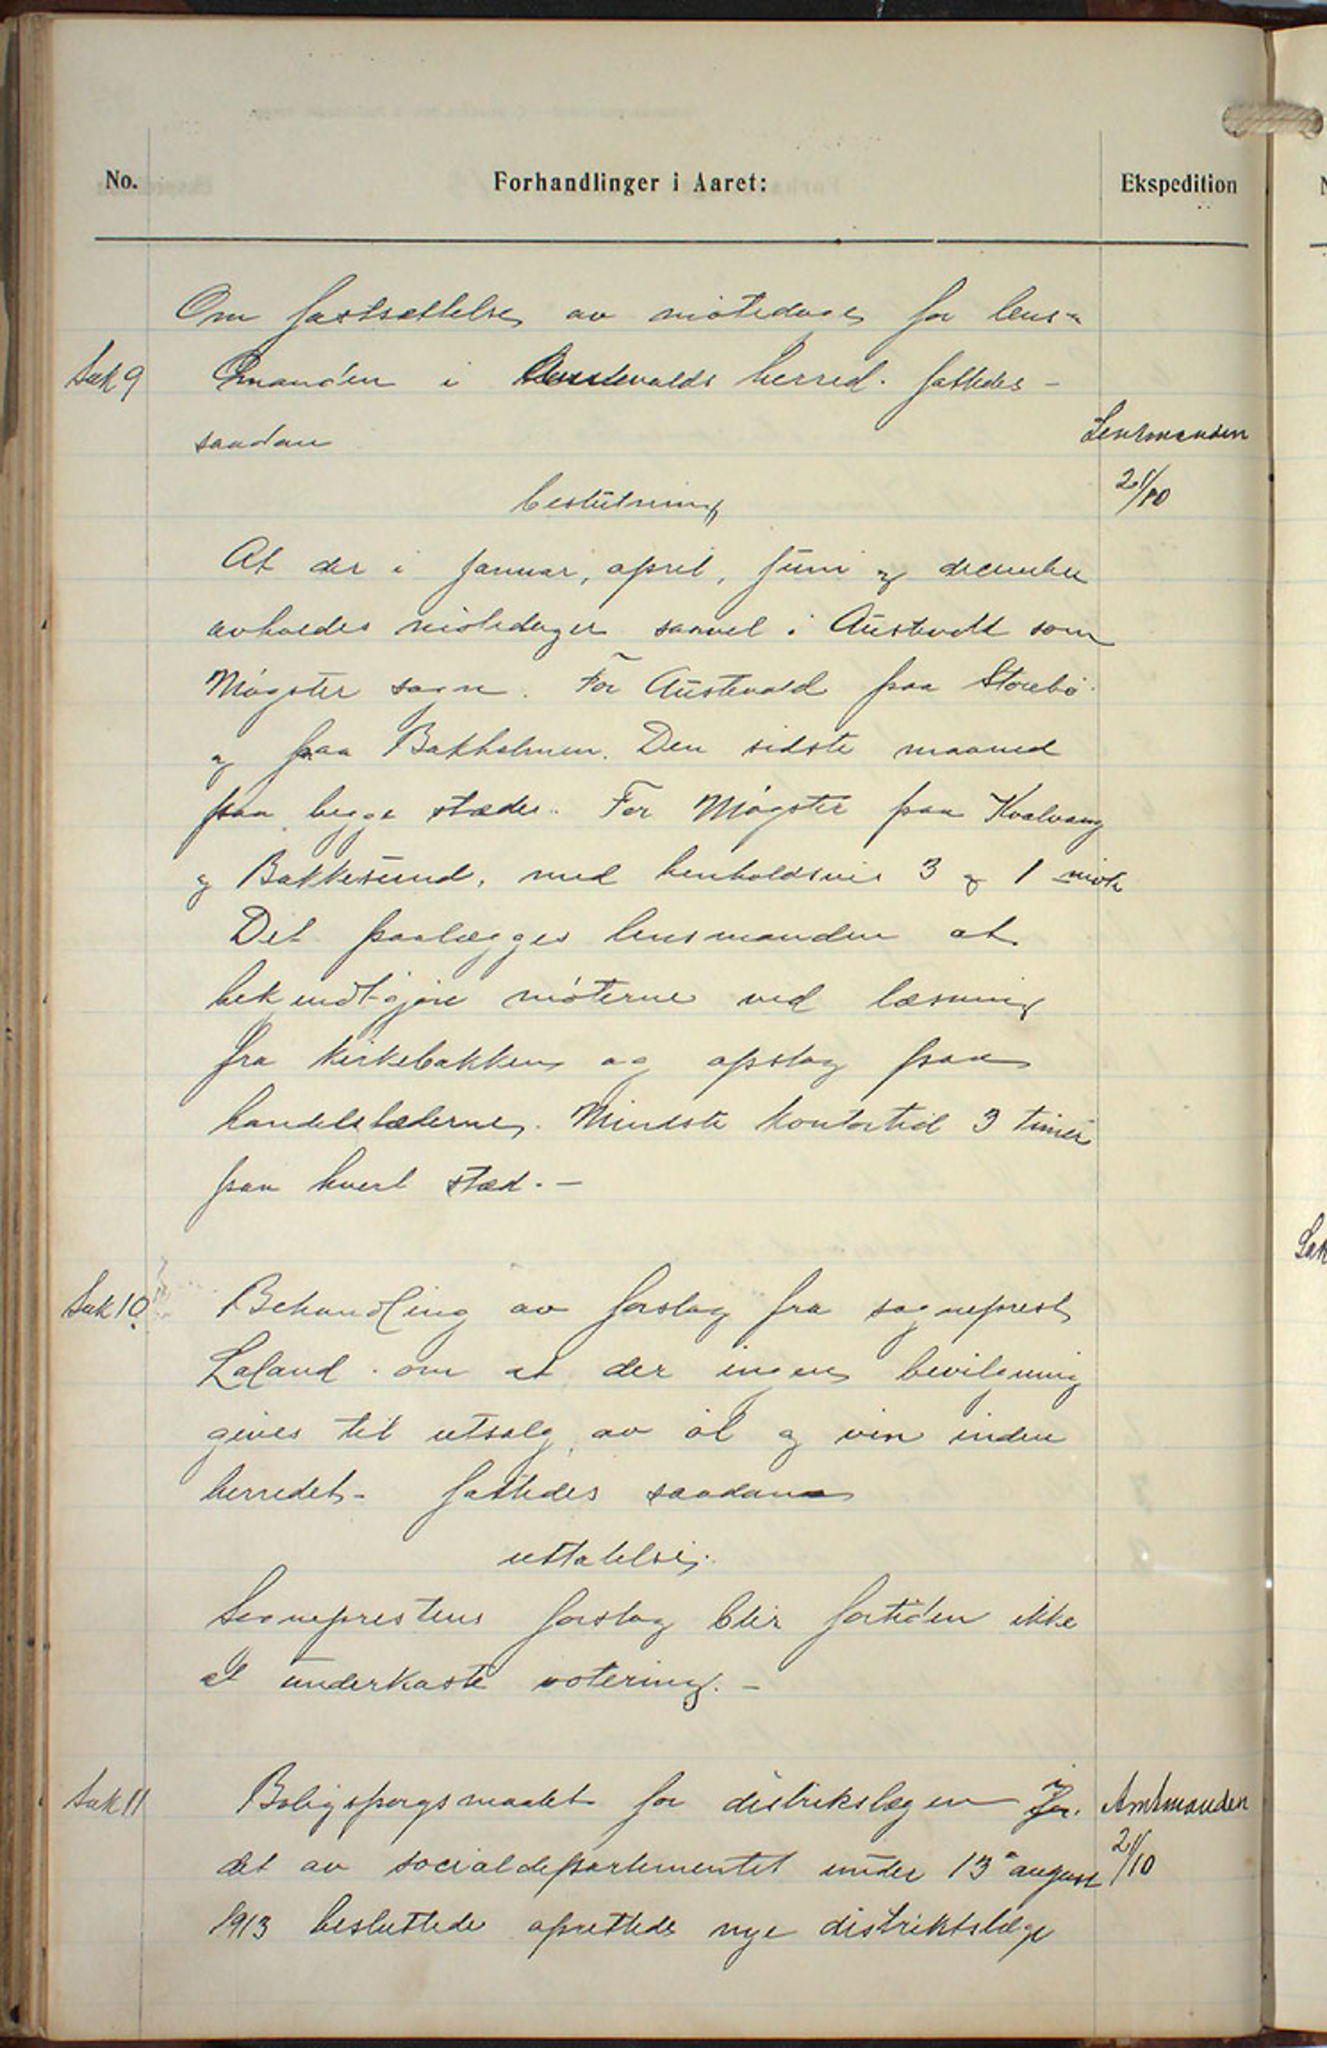 No. Forhandlinger i Aaret: Ekspedition
Om fastsættelse av møtedage for lens-
Sak 9 manden i Austevolds herred. fattedes -
saadan Lensmanden
beslutning 21/10
At der i januar, april, juni og december
avholdes møtedager saavel i Austevold som
Møgster sogn. For Austevold paa Storebø
og paa Bakholmen. Den sidste maaned
paa begge stæder. For Møgster paa Kvalvaag
og Bakkesund, med henholdsvis 3 og 1 møte
Det paalægges lensmanden at
bekjendtgjøre møterne ved læsning
fra kirkebakken og opslag paa
handelstæderne. Mindste kontortid 3 timer
paa hvert stæd. -
Sak 10. Behandling av forslag fra sogneprest
Laland om at der ingen bevilgning
gives til utsalg av øl og vin inden
herredet - fattedes saadan
uttalelse.
Sogneprestens forslag blir fortiden ikke
at underkaste votering. -
Sak 11 Boligspørgsmaalet for distrikslægen i Amtmanden
det av socialdepartementet under 13de august 21/10
1913 besluttede oprettede nye distriktslæge
Sak